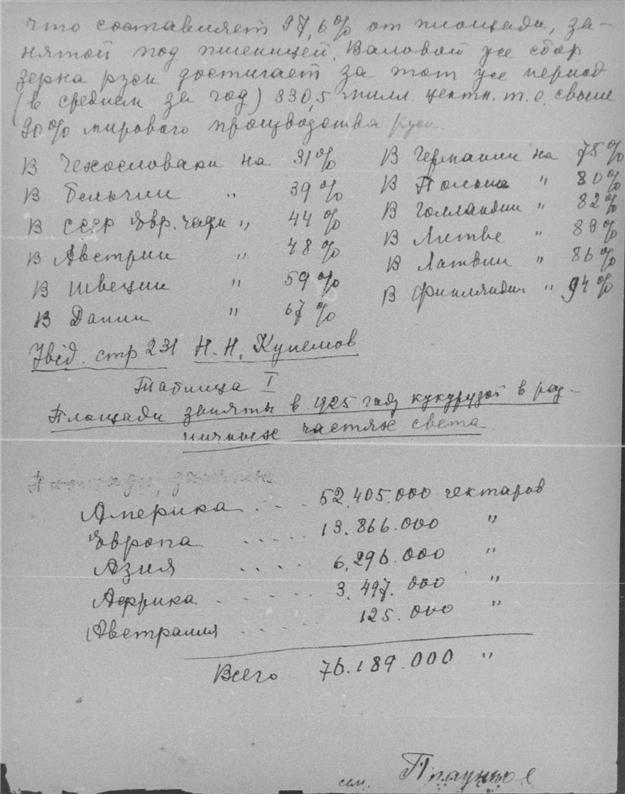 что составляет 97,6% от площади, за-
нятой под пшеницей. Валовой же сбор
зерна ржи достигает за тот же период
(в среднем за год) 830,5 милл. центн. т.е. свыше
90% мирового производства ржи.
В Чехословакии на 31%
В Бельгии " 39%
В СССР Евр. части " 44%
В Австрии " 48%
В Швеции " 59%
В Дании " 67%
В Германии на 75%
В Польше " 80%
В Голландии " 82%
В Литве " 83%
В Латвии " 86%
В Финляндии " 94%
Ibid. стр 231 Н.Н. Кулешов
Таблица I
Площади занятые в 1925 году кукурузой в раз-
личных частях света
Площади, занятые
Америка . . . . 52.405.000 гектаров
Европа . . . . . 13.866.000 "
Азия . . . . 6.296.000 "
Африка . . . . 3.497.000 "
Австралия . . . . . 125.000 "
Всего 76.189.000 "